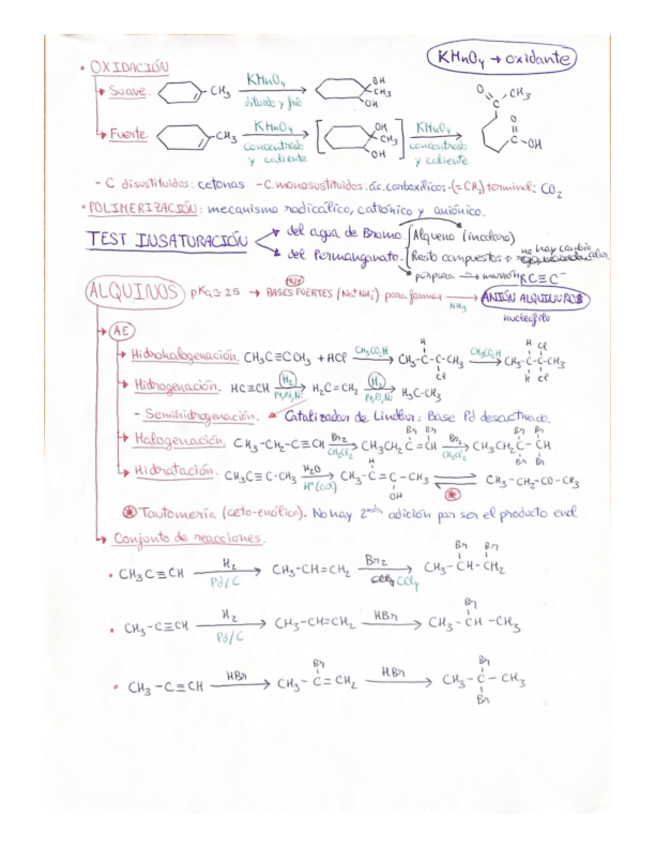 KMnO4 → oxidante
• OXIDACIÓN
Suave. CH3 KMnO4 diluido y frío OH CH3 OH
O CH3 O C-OH
Fuerte. CH3 KMnO4 concentrado y caliente [OH CH3 OH] KMnO4 concentrado y caliente
- C disustituidos: cetonas - C monosustituidos: ác. carboxílicos - (=CH2) terminal: CO2
• POLIMERIZACIÓN: mecanismo radicálico, catiónico y aniónico.
TEST INSATURACIÓN
del agua de Bromo.
del Permanganato.
Alqueno (incoloro)
Resto compuestos → no hay cambio color
púrpura → marrón
RC≡C⁻
ALQUINOS pKa≃25 → BASES MUY FUERTES (Na⁺NH2⁻) para formar NH3 → ANIÓN ALQUILUROS
nucleófilo
AE
Hidrohalogenación. CH3C≡CCH3 + HCl CH3CO2H → CH3-C=C-CH3 H Cl CH3CO2H → CH3-C-C-CH3 H Cl H Cl
Hidrogenación. HC≡CH H2 Pt,Pd,Ni → H2C=CH2 H2 Pt,Pd,Ni → H3C-CH3
- Semihidrogenación. Catalizador de Lindlar: Base Pd desactivado.
Halogenación. CH3-CH2-C≡CH Br2 CH2Cl2 → CH3CH2C=CH Br Br Br2 CH2Cl2 → CH3CH2C-CH Br Br Br Br
Hidratación. CH3C≡C-CH3 H2O H⁺(cat) → CH3-C=C-CH3 H OH ⇌ CH3-CH2-CO-CH3
⊛ Tautomería (ceto-enólica). No hay 2nda adición por ser el producto enol
Conjunto de reacciones.
• CH3C≡CH H2 Pd/C → CH3-CH=CH2 Br2 CCl4 → CH3-CH-CH2 Br Br
• CH3-C≡CH H2 Pd/C → CH3-CH=CH2 HBr → CH3-CH-CH3 Br
• CH3-C≡CH HBr → CH3-C=CH2 Br HBr → CH3-C-CH3 Br Br